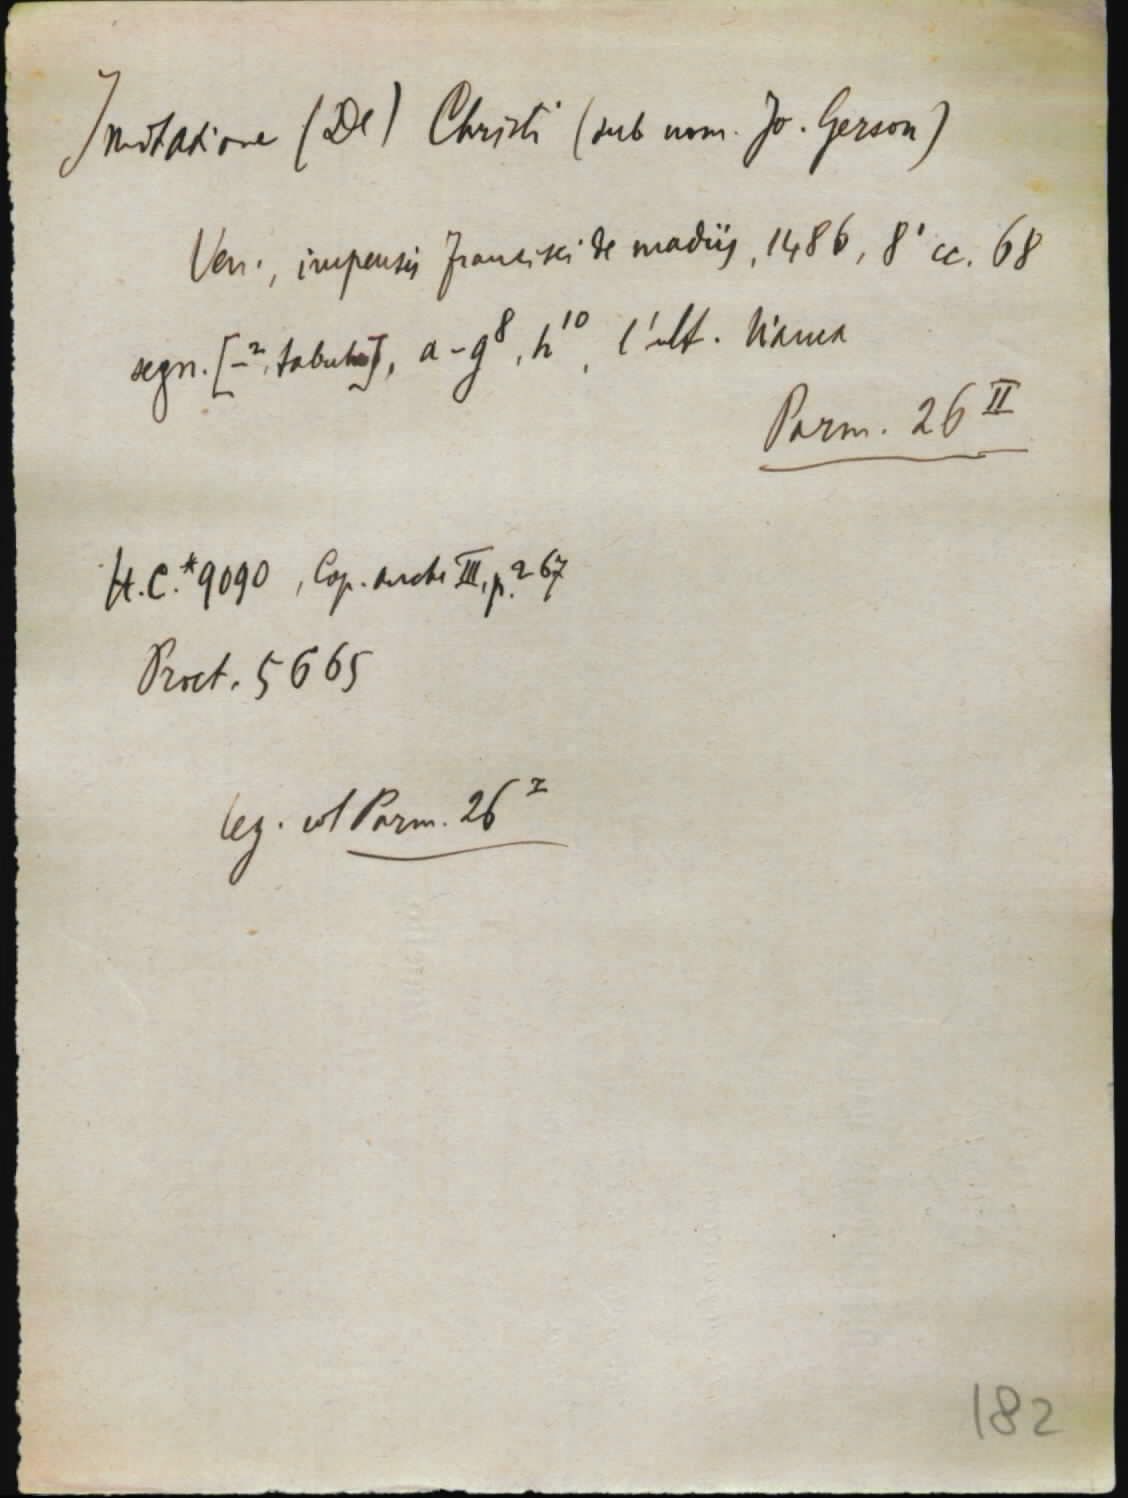 Imitatione (De) Christi (sub nom. Jo. Gerson)
Ven., impensis Francisci de madiis, 1486, 8' cc. 68
segn. [-², tabula], a-g⁸, h¹⁰, l'ult. bianca
Parm. 26 II
H.C.*9090, Cop. anche III, p. 267
Proct. 5665
leg. col Parm. 26 I
182